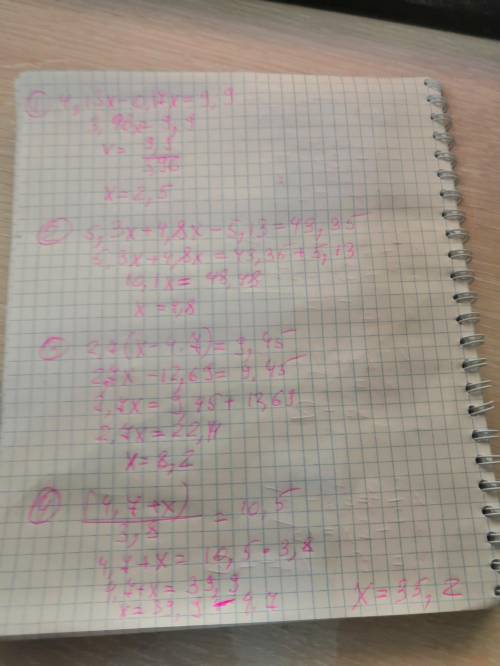 ① 4,13x-0,17x=9,9
3,96x=9,9
x= 9,9/3,96
x=2,5
② 5,3x+4,8x-5,13=43,35
5,3x+4,8x=43,35+5,13
10,1x=48,48
x=4,8
③ 2,7(x-4,7)=9,45
2,7x-12,69=9,45
2,7x=9,45+12,69
2,7x=22,14
x=8,2
④ (4,7+x)/3,8=10,5
4,7+x=10,5•3,8
4,7+x=39,9
x=39,9-4,7 x=35,2